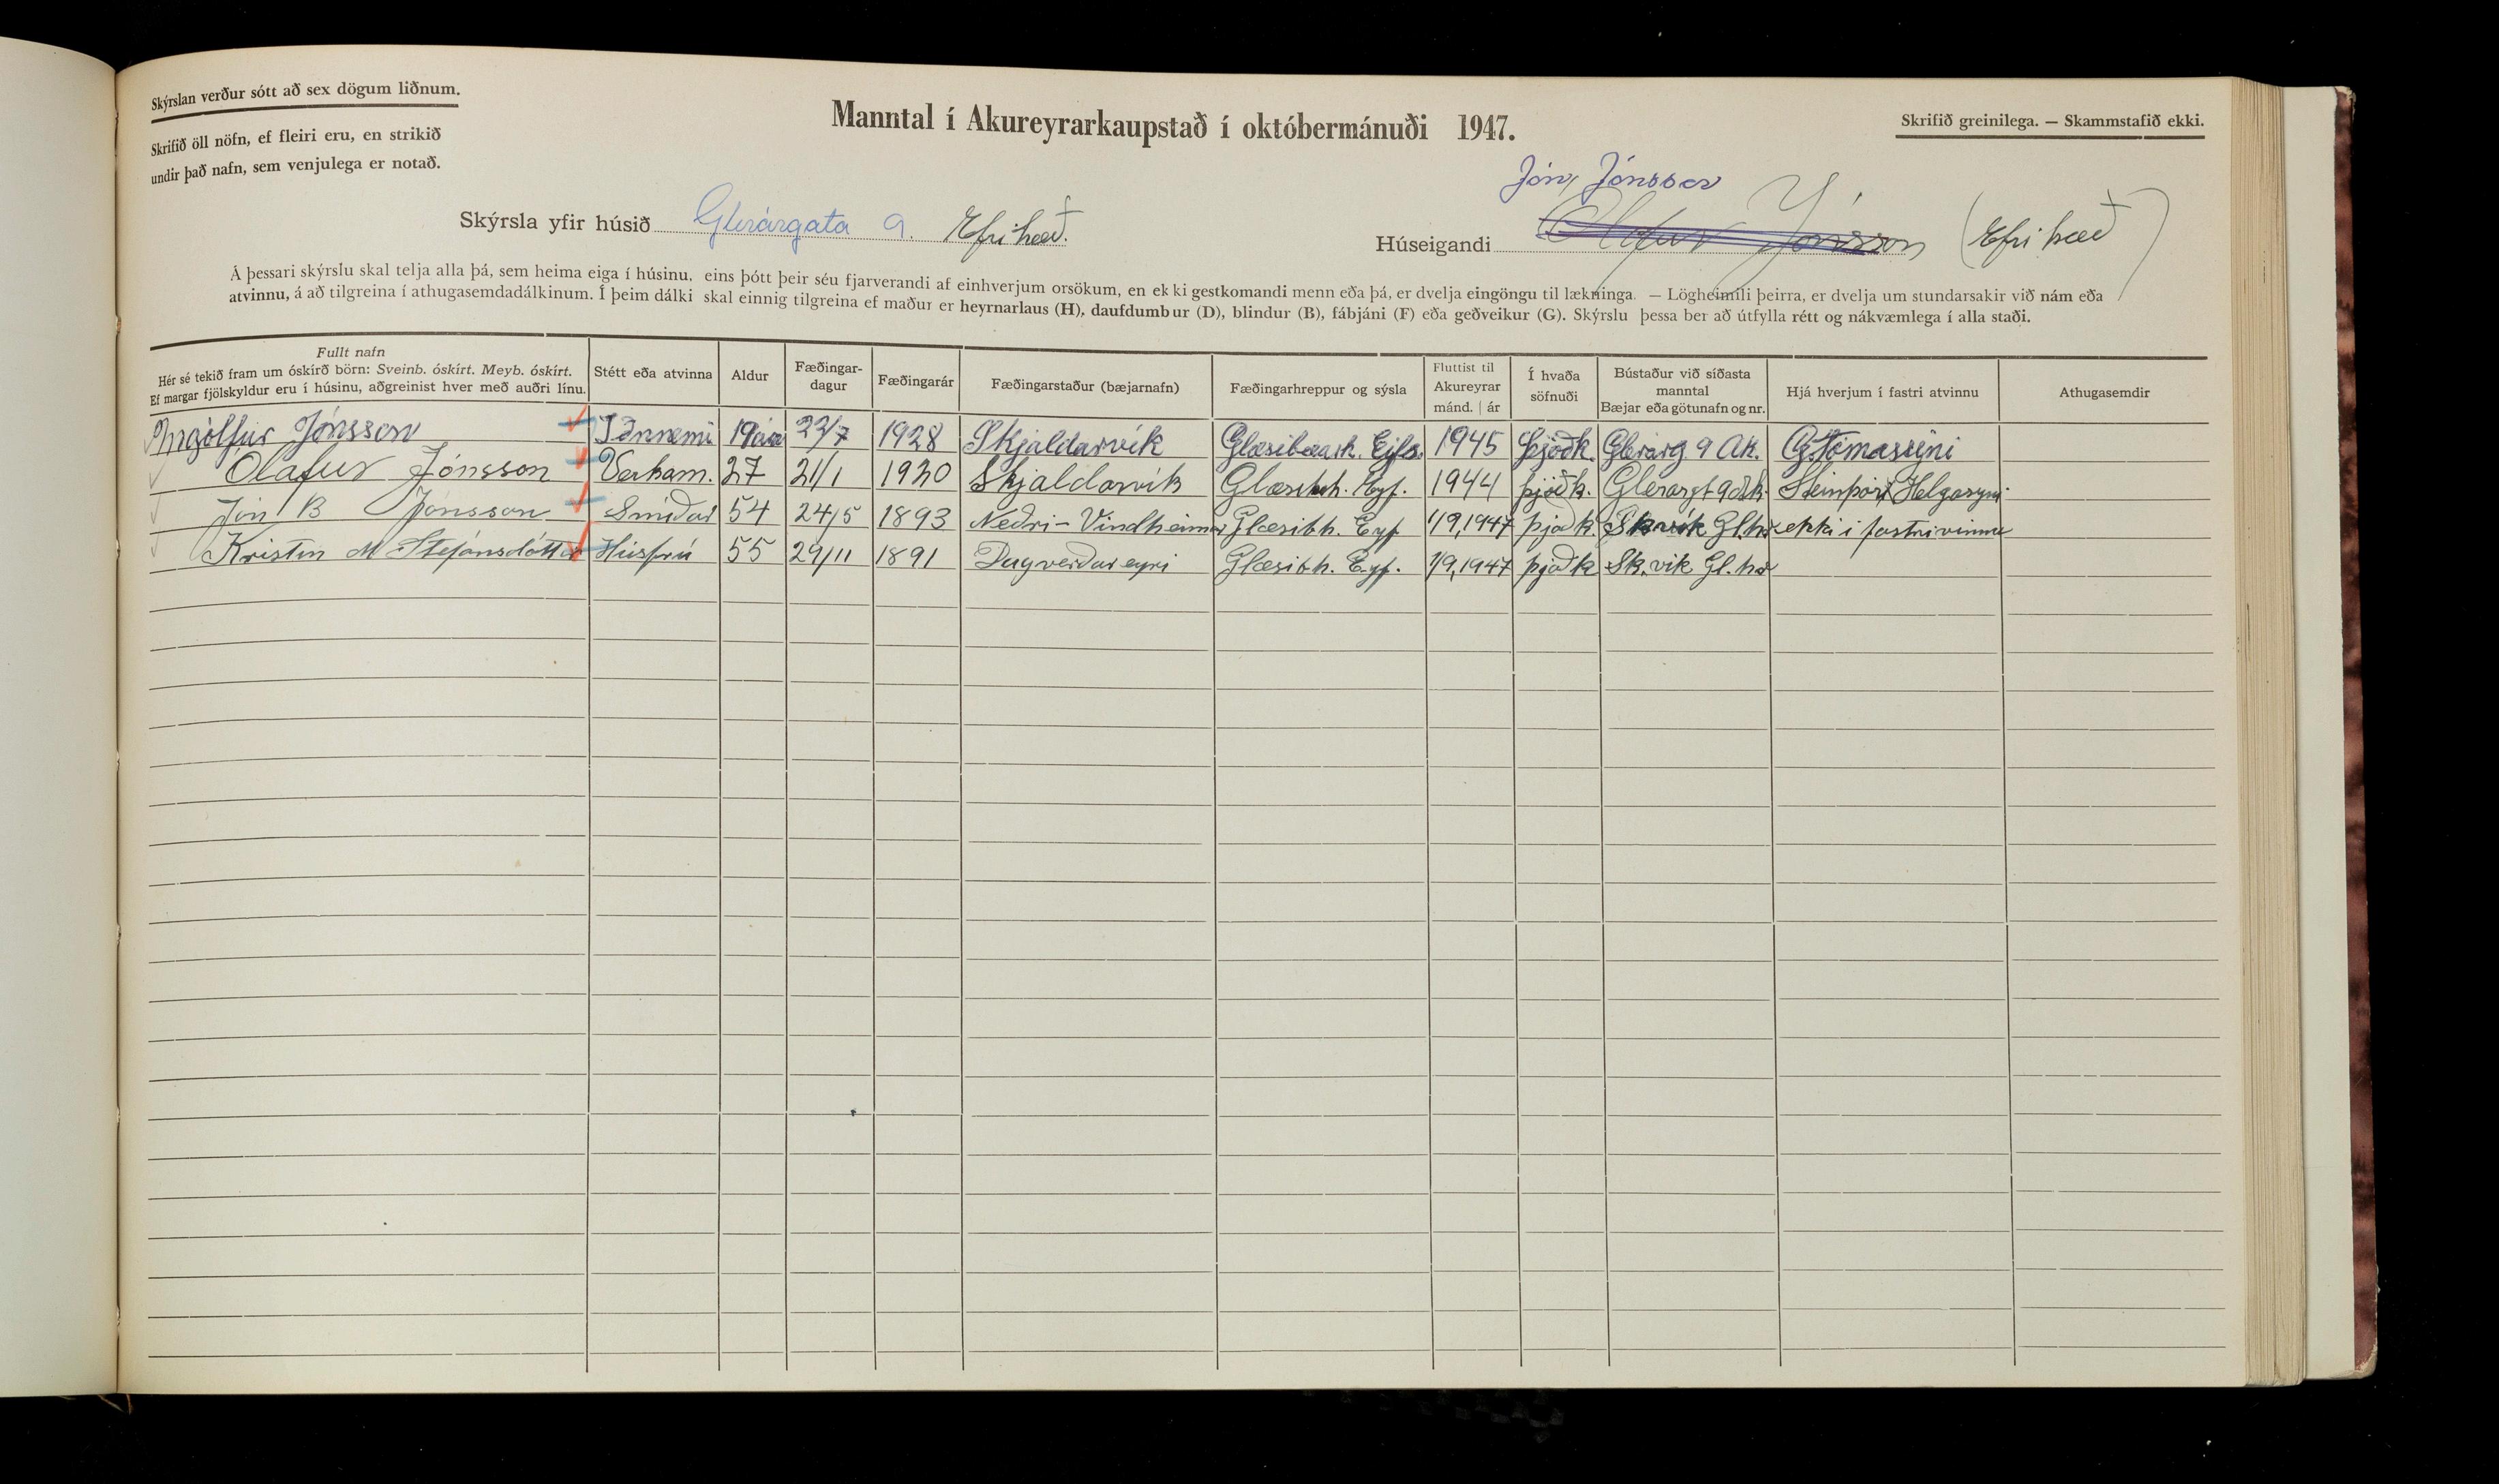 Skýrslan verður sótt að sex dögum liðnum.
Skrifið öll nöfn, ef fleiri eru, en strikið
undir það nafn, sem venjulega er notað.
Manntal í Akureyrarkaupstað í októbermánuði 1947.
Skrifið greinilega. — Skammstafið ekki.
Jón Jónsson
Skýrsla yfir húsið Glerárgata 9. Efri hæð.
Húseigandi Ólafur Jónsson (Efri hæð)
Á þessari skýrslu skal telja alla þá, sem heima eiga í húsinu, eins þótt þeir séu fjarverandi af einhverjum orsökum, en ekki gestkomandi menn eða þá, er dvelja eingöngu til lækninga. — Lögheimili þeirra, er dvelja um stundarsakir við nám eða
atvinnu, á að tilgreina í athugasemdadálkinum. Í þeim dálki skal einnig tilgreina ef maður er heyrnarlaus (H), daufdumbur (D), blindur (B), fábjáni (F) eða geðveikur (G). Skýrslu þessa ber að útfylla rétt og nákvæmlega í alla staði.
Fullt nafn
Hér sé tekið fram um óskírð börn: Sveinb. óskírt. Meyb. óskírt.
Ef margar fjölskyldur eru í húsinu, aðgreinist hver með auðri línu.
Stétt eða atvinna
Aldur
Fæðingar-
dagur
Fæðingarár
Fæðingarstaður (bæjarnafn)
Fæðingarhreppur og sýsla
Fluttist til
Akureyrar
mánd. | ár
Í hvaða
söfnuði
Bústaður við síðasta
manntal
Bæjar eða götunafn og nr.
Hjá hverjum í fastri atvinnu
Athugasemdir
Ingólfur Jónsson Iðnnemi 19 ára 22/7 1928 Skjaldarvík Glæsibæark. Eyfs. 1945 Þjóðk. Glerárg. 9 Ak. G. Tómassyni
Ólafur Jónsson Verkam. 27 21/1 1920 Skjaldarvík Glæsibh. Eyf. 1944 þjóðk. Glerárgt 9 Ak. Steinþóri Helgasyni
Jón B Jónsson Smiður 54 24/5 1893 Neðri-Vindheimar Glæsibh. Eyf 1/9,1947 þjóðk. Sk.vík Gl.hr ekki í fastri vinnu
Kristín M Stefánsdóttir Húsfrú 55 29/11 1891 Dagverðareyri Glæsibh. Eyf. 1/9,1947 þjóðk Sk.vik Gl.hr